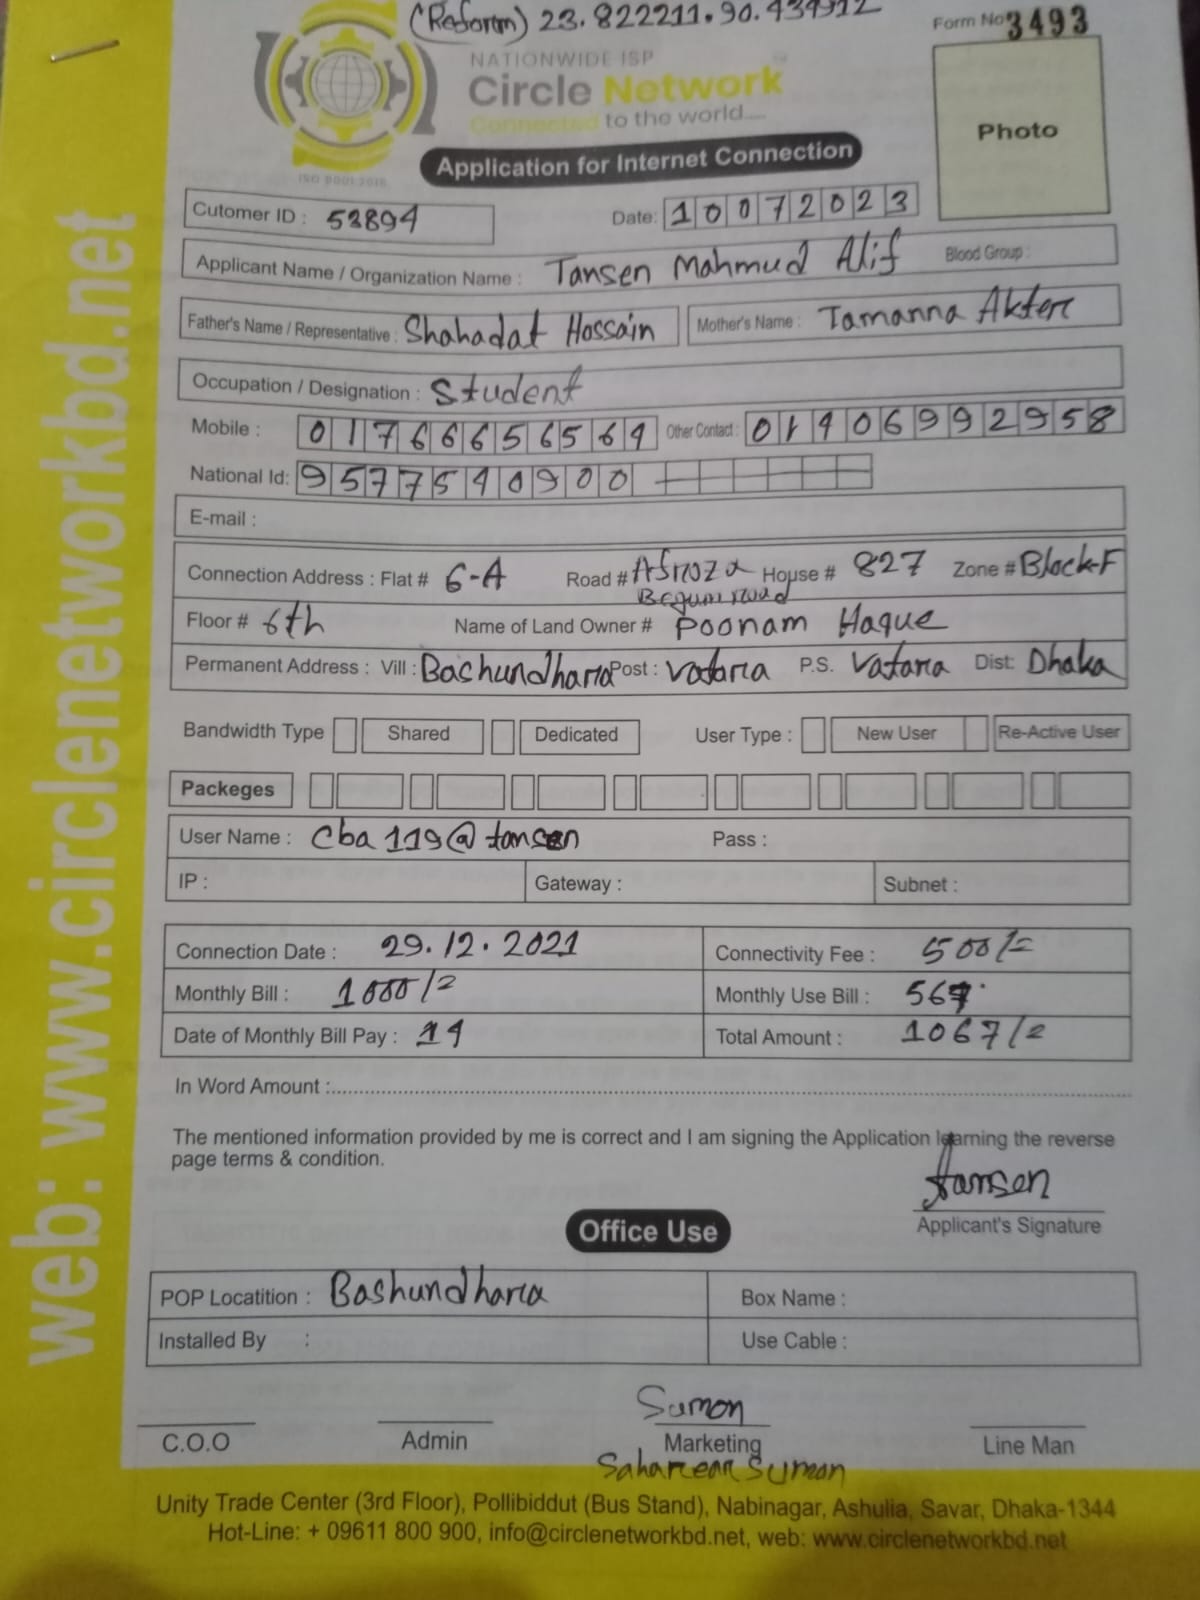 (Reform) 23.822211.90.434912
Form No 3493
NATIONWIDE ISP
Circle Network
Connected to the world....
ISO 9001:2015
Photo
Application for Internet Connection
Cutomer ID : 53894 Date: 10072023
Applicant Name / Organization Name : Tansen Mahmud Alif Blood Group :
Father's Name / Representative : Shahadat Hossain Mother's Name : Tamanna Akter
Occupation / Designation : Student
Mobile : 01766656564 Other Contact : 01406992958
National Id: 9577540900
E-mail :
Connection Address : Flat # 6-A Road # Afroza Begum road House # 827 Zone # Block-F
Floor # 6th Name of Land Owner # Poonam Haque
Permanent Address : Vill : Bashundhara Post : Vatara P.S. Vatara Dist: Dhaka
Bandwidth Type Shared Dedicated User Type : New User Re-Active User
Packeges
User Name : Cba119@tansen Pass :
IP : Gateway : Subnet :
Connection Date : 29.12.2021 Connectivity Fee : 500/=
Monthly Bill : 1000/= Monthly Use Bill : 567
Date of Monthly Bill Pay : 14 Total Amount : 1067/=
In Word Amount :
The mentioned information provided by me is correct and I am signing the Application learning the reverse
page terms & condition.
tansen
Applicant's Signature
Office Use
POP Locatition : Bashundhara Box Name :
Installed By : Use Cable :
Sumon
C.O.O Admin Marketing Line Man
Sahareear Sumon
Unity Trade Center (3rd Floor), Pollibiddut (Bus Stand), Nabinagar, Ashulia, Savar, Dhaka-1344
Hot-Line: + 09611 800 900, info@circlenetworkbd.net, web: www.circlenetworkbd.net
web: www.circlenetworkbd.net